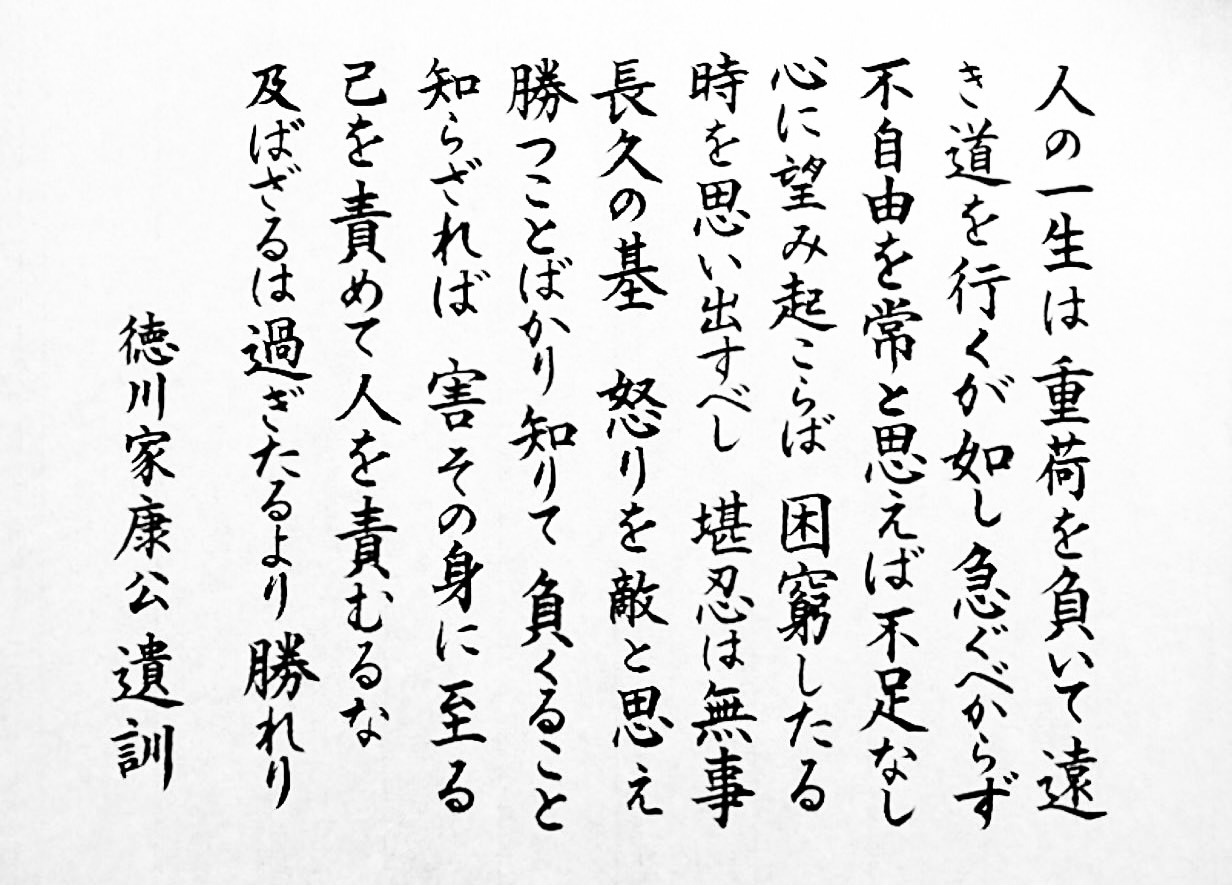 人の一生は重荷を負いて遠
き道を行くが如し急ぐべからず
不自由を常と思えば不足なし
心に望み起こらば 困窮したる
時を思い出すべし 堪忍は無事
長久の基 怒りを敵と思え
勝つことばかり知りて 負くること
知らざれば 害その身に至る
己を責めて人を責むるな
及ばざるは過ぎたるより勝れり
徳川家康公遺訓